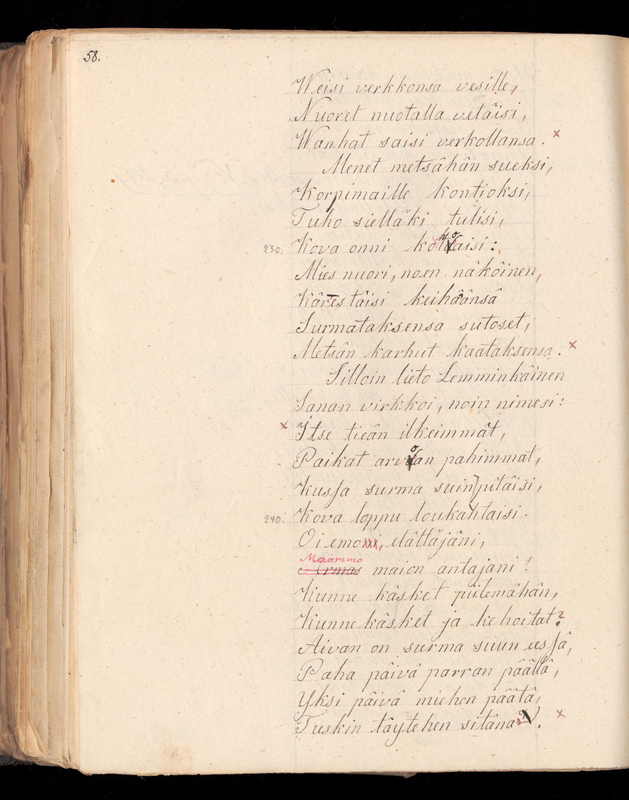 58.
Weisi verkkonsa vesille,
Nuoret nuotalla vetäisi,
Wanhat saisi verkollansa. ×
Menet metsähän sueksi,
Korpimaille kontioksi,
Tuho sielläki tulisi,
230. Kova onni kohtoaisi:
Mies nuori, noen näköinen,
Kärestäisi keihäänsä
Surmataksensa sutoset,
Metsän karhut kaataksensa. ×
Silloin lieto Lemminkäinen
Sanan virkkoi, noin nimesi:
× Itse tieän ilkeimmät,
Paikat arvoan pahimmat,
Kussa surma suin pitäisi,
240. Kova loppu loukahtaisi.
Oi emoni, elättäjäni,
Maammo
Armas maion antajani!
Kunne käsket piilemähän,
Kunne käsket ja kehoitat?
Aivan on surma suun eessä,
Paha päivä parran päällä,
Yksi päivä miehen päätä,
Tuskin täytehen sitänä. ×